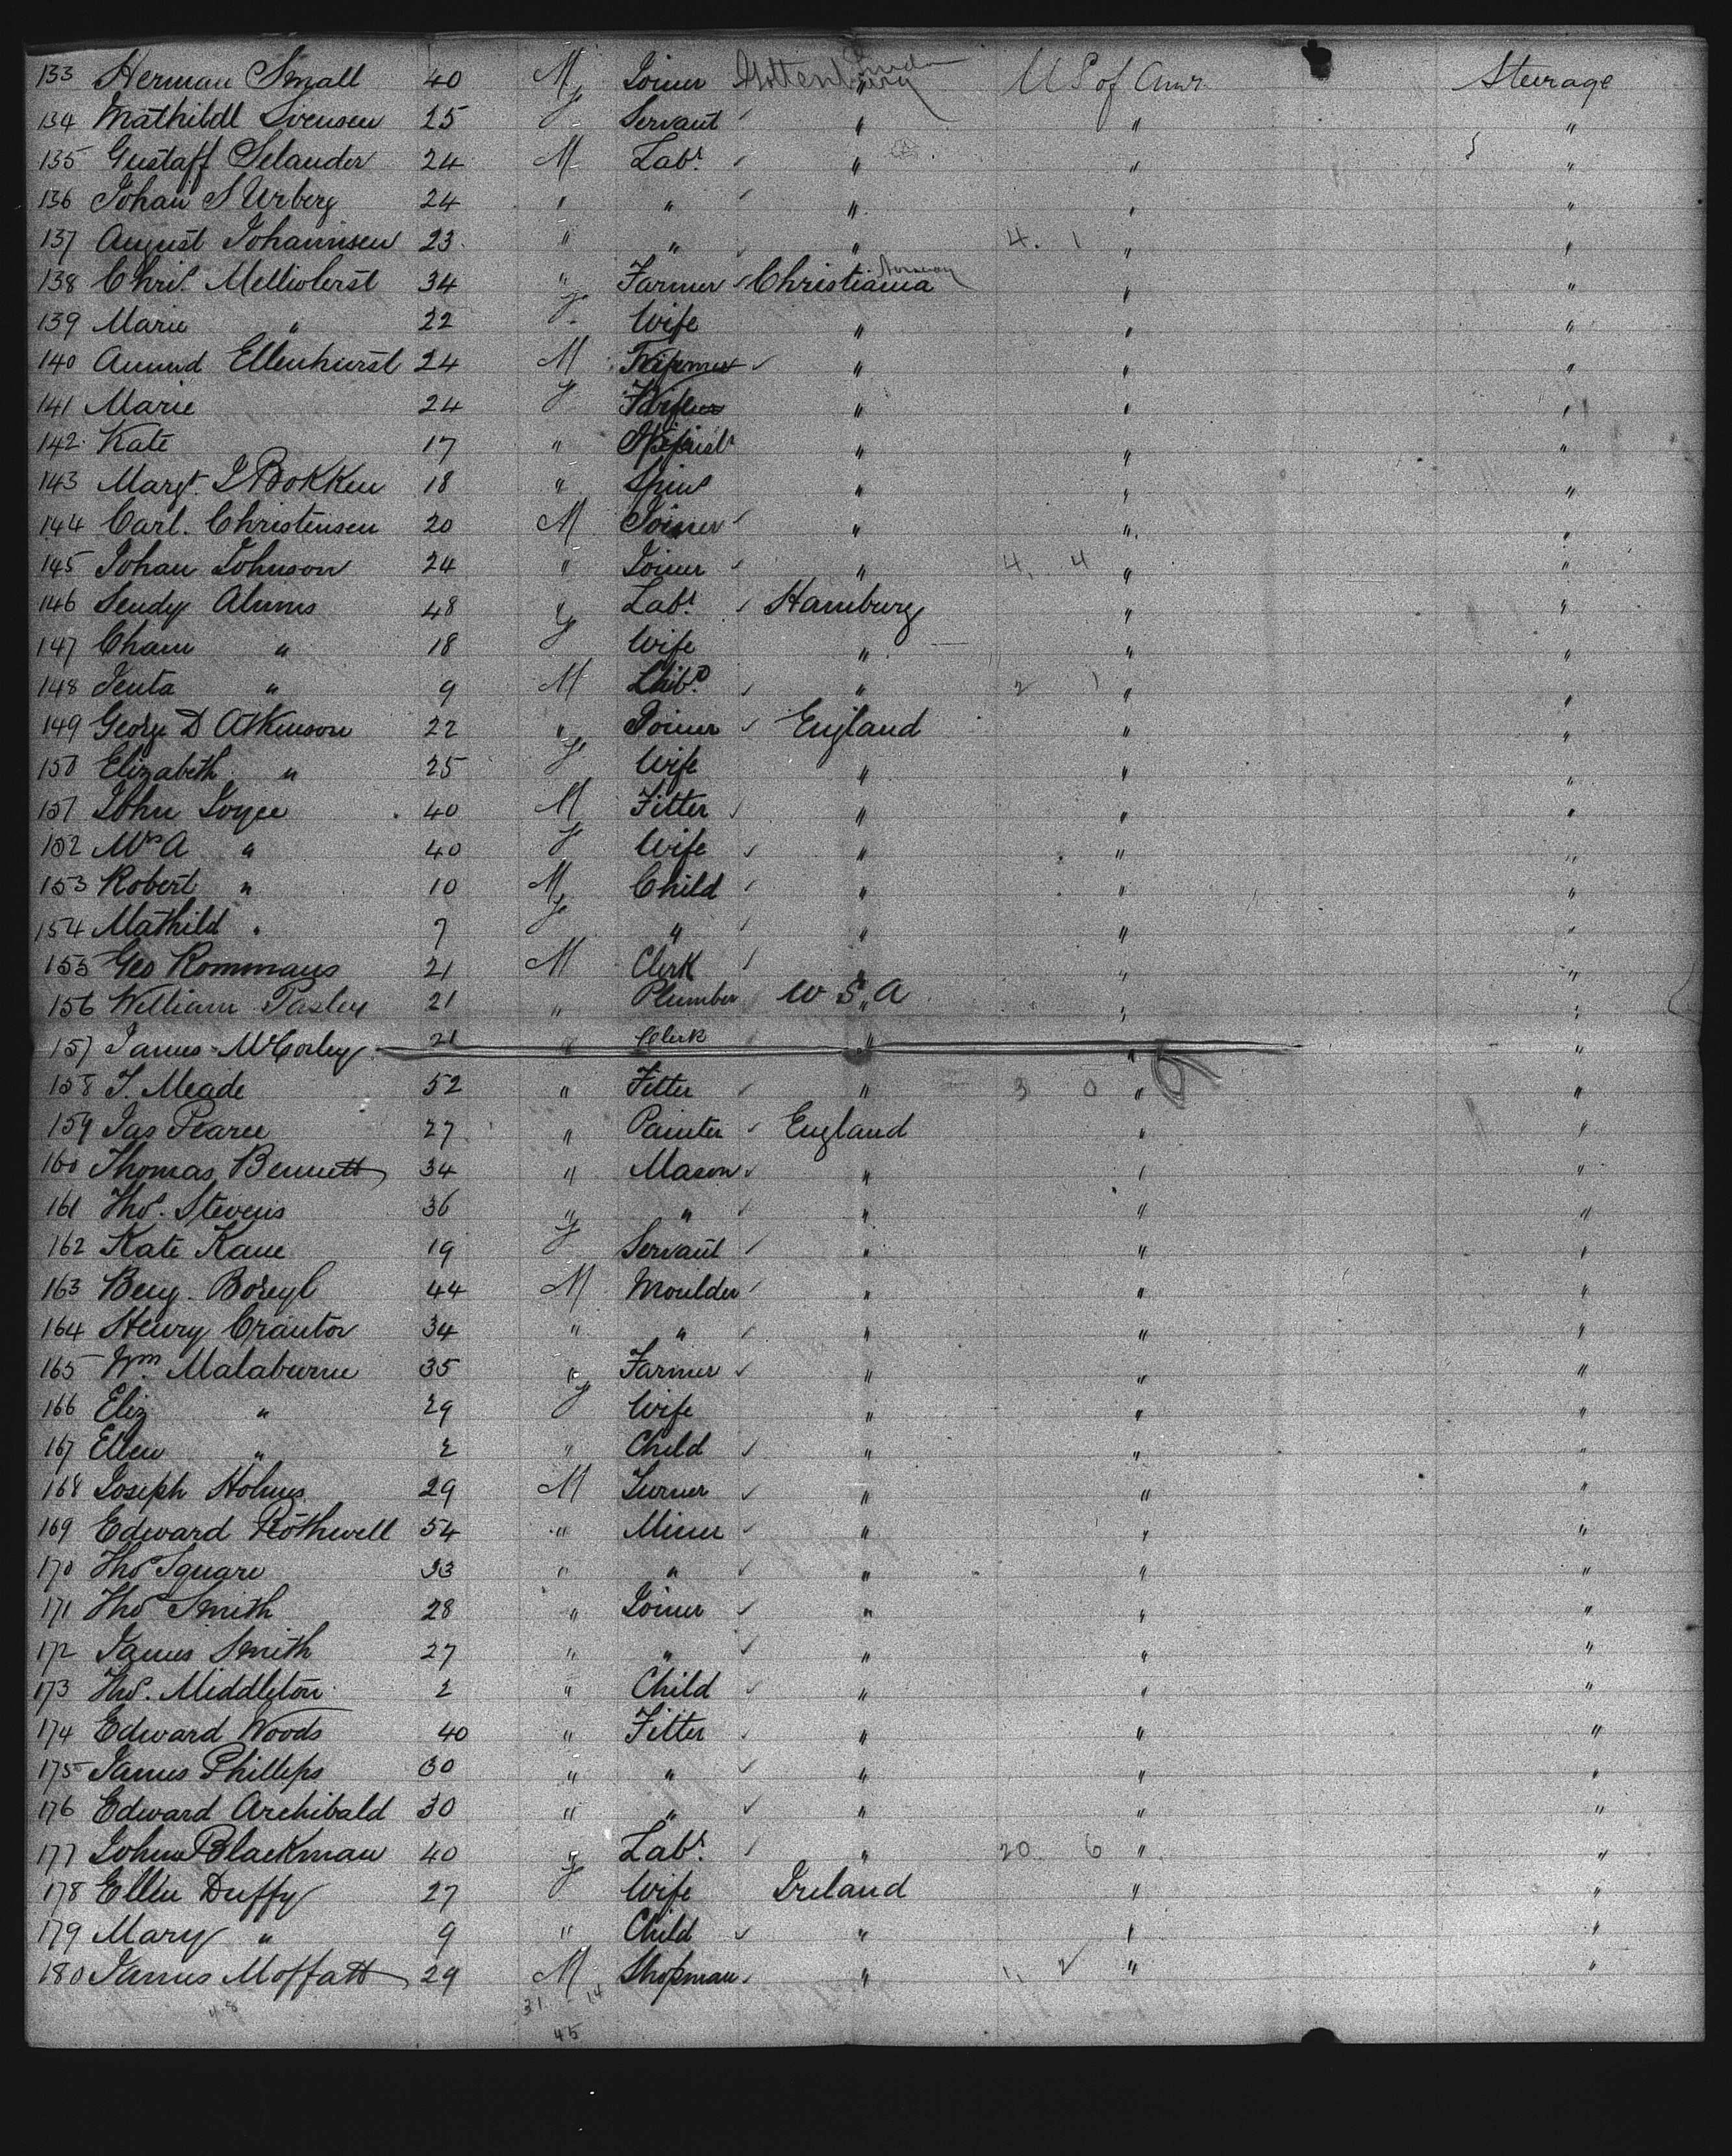 133 Herman Small 40 M Joiner Gottenburg U S of Amr. Steerage
134 Mathildl Svensen 25 F Servant " " "
135 Gustaff Selander 24 M Labr. " " "
136 Johan S Urberg 24 " " " " "
137 August Johannsen 23 " " " 4. 1 " "
138 Chris. 34 " Farmer Christiania Norway " "
139 Marie " 22 F Wife " " "
140 Amund Ellenhurst 24 M " " "
141 Marie 24 F Wife " " "
142 Kate 17 " " " "
143 Margt. J Bokken 18 " Spins " " "
144 Carl. Christensen 20 M Joiner " " "
145 Johan Johnson 24 " Joiner " 4. 4 " "
146 Sendy Alums 48 " Labr. Hamburg " "
147 Cham " 18 F Wife " " "
148 Jenta " 9 M " 2 1 " "
149 George D Atkinson 22 " Joiner England " "
150 Elizabeth " 25 F Wife " " "
151 John Joyce 40 M Fitter " " "
152 Mrs A " 40 F Wife " " "
153 Robert " 10 M Child " " "
154 Mathild " 7 F " " " "
155 Geo Rommays 21 M Clerk " " "
156 William Pasley 21 " Plumber U S A " "
157 James McCorley 21 " Clerk " "
158 J. Meade 52 " Fitter " 3 0 " "
159 Jas Pearce 27 " Painter England " "
160 Thomas Bennett 34 " Mason " " "
161 Thos. Stevens 36 " " " " "
162 Kate Kane 19 F Servant " " "
163 Benj. 44 M Moulder " " "
164 Henry Crantor 34 " " " " "
165 Wm. Malaburne 35 " Farmer " " "
166 Eliz " 29 F Wife " " "
167 Ellen " 2 " Child " " "
168 Joseph Holmes 29 M Turner " " "
169 Edward Rothwell 54 " Miner " " "
170 Thos Square 33 " " " " "
171 Thos Smith 28 " Joiner " " "
172 James Smith 27 " " " " "
173 Thos. Middleton 2 " Child " " "
174 Edward Woods 40 " Fitter " " "
175 James Phillips 30 " " " " "
176 Edward Archibald 30 " " " " "
177 John Blackman 40 " Labr. " 20 6 " "
178 Ellen Duffy 27 F Wife Ireland " "
179 Mary " 9 " Child " " "
180 James Moffatt 29 M Shopman " 1, 2 " "
48 31 - 14
45